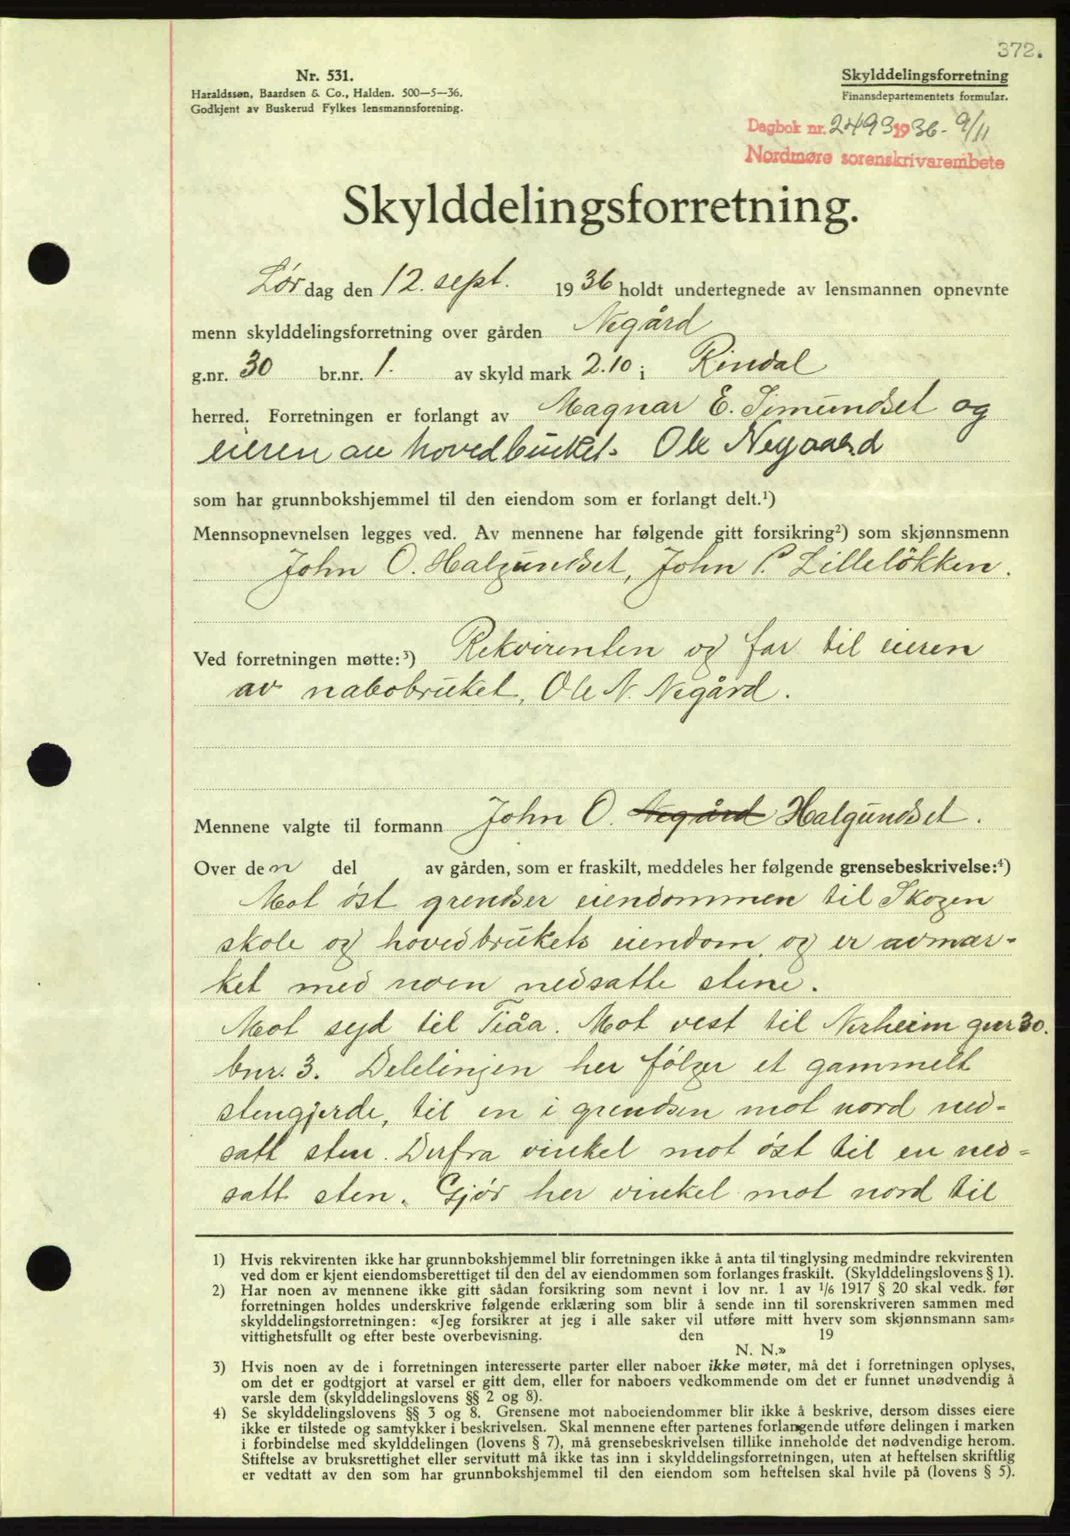 372.
Nr. 531.
Haraldssøn, Baardsen & Co., Halden. 500—5—36.
Godkjent av Buskerud Fylkes lensmannsforening.
Skylddelingsforretning
Finansdepartementets formular.
Dagbok nr. 2493 1936 - 9/11
Nordmøre sorenskrivarembete
Skylddelingsforretning.
Lørdag den 12. sept. 1936 holdt undertegnede av lensmannen opnevnte
menn skylddelingsforretning over gården Negård
g.nr. 30 br.nr. 1. av skyld mark 2.10 i Rindal
herred. Forretningen er forlangt av Magnar E. Simundset og
eieren av hovedbruket. Ole Negaard
som har grunnbokshjemmel til den eiendom som er forlangt delt.¹)
Mennsopnevnelsen legges ved. Av mennene har følgende gitt forsikring²) som skjønnsmenn
John O. Halgundset, John P. Lilleløkken.
Ved forretningen møtte:³) Rekvirenten og far til eieren
av nabobruket, Ole N. Negård.
Mennene valgte til formann John O. Negård Halgundset.
Over den del av gården, som er fraskilt, meddeles her følgende grensebeskrivelse:⁴)
Mot øst grendser eiendommen til Skogen
skole og hovedbrukets eiendom og er avmer-
ket med noen nedsatte stene.
Mot syd til Tiåa. Mot vest til Nerheim gnr 30.
bnr. 3. Delelinjen her følger et gammelt
stengjerde, til en i grendsen mot nord ned-
satt sten. Derfra vinkel mot øst til en ned-
satt sten. Gjør her vinkel mot nord til
1) Hvis rekvirenten ikke har grunnbokshjemmel blir forretningen ikke å anta til tinglysing medmindre rekvirenten
ved dom er kjent eiendomsberettiget til den del av eiendommen som forlanges fraskilt. (Skylddelingslovens § 1).
2) Har noen av mennene ikke gitt sådan forsikring som nevnt i lov nr. 1 av 1/6 1917 § 20 skal vedk. før
forretningen holdes underskrive følgende erklæring som blir å sende inn til sorenskriveren sammen med
skylddelingsforretningen: «Jeg forsikrer at jeg i alle saker vil utføre mitt hverv som skjønnsmann sam-
vittighetsfullt og efter beste overbevisning. den 19
N. N.»
3) Hvis noen av de i forretningen interesserte parter eller naboer ikke møter, må det i forretningen oplyses,
om det er godtgjort at varsel er gitt dem, eller for naboers vedkommende om det er funnet unødvendig å
varsle dem (skylddelingslovens §§ 2 og 8).
4) Se skylddelingslovens §§ 3 og 8. Grensene mot naboeiendommer blir ikke å beskrive, dersom disses eiere
ikke er tilstede og samtykker i beskrivelsen. Skal mennene efter partenes forlangende utføre delingen i marken
i forbindelse med skylddelingen (lovens § 7), må grensebeskrivelsen tillike inneholde det nødvendige herom.
Stiftelse av bruksrettighet eller servitutt må ikke tas inn i skylddelingsforretningen, uten at heftelsen skriftlig
er vedtatt av den som har grunnbokshjemmel til den eiendom som heftelsen skal hvile på (lovens § 5).